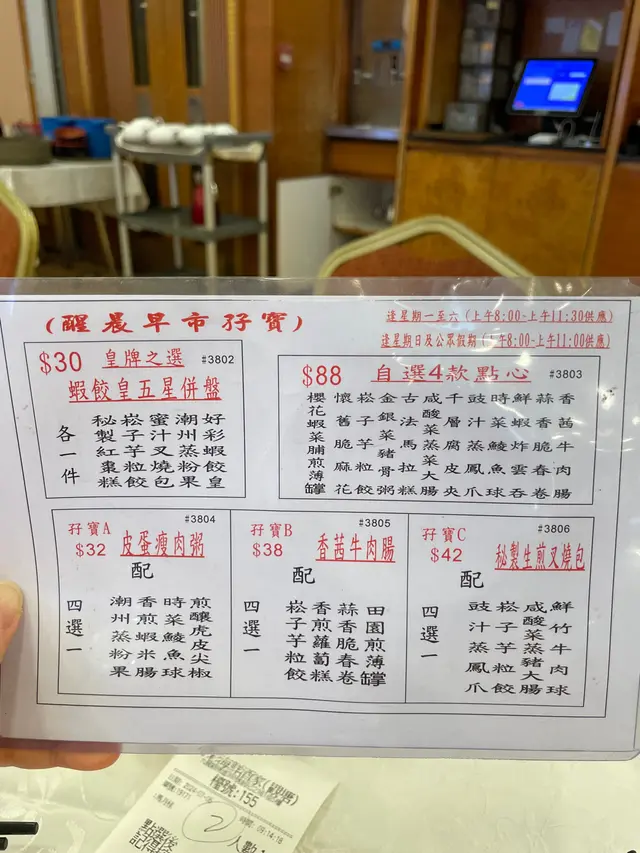 (醒晨早市孖寶)
逢星期一至六(上午8:00-上午11:30供應)
逢星期日及公眾假期(上午8:00-上午11:00供應)
$30 皇牌之選 #3802
蝦餃皇五星併盤
好彩蝦餃皇
潮州蒸粉果
蜜汁叉燒包
崧子芋粒餃
秘製紅棗糕
各一件
$88 自選4款點心 #3803
香茜牛肉腸
蒜香脆春卷
鮮蝦炸雲吞
時菜鯪魚球
豉汁蒸鳳爪
千層腐皮夾
咸酸菜豬大腸
古法馬拉糕
金銀菜豬骨粥
崧子芋粒餃
懷舊脆麻花
櫻花蝦菜脯煎薄罉
#3804
孖寶A
$32 皮蛋瘦肉粥
配
四選一
煎釀虎皮尖椒
時菜鯪魚球
香煎蝦米腸
潮州蒸粉果
#3805
孖寶B
$38 香茜牛肉腸
配
四選一
田園煎薄罉
蒜香脆春卷
香煎蘿蔔糕
崧子芋粒餃
#3806
孖寶C
$42 秘製生煎叉燒包
配
四選一
鮮竹牛肉球
咸酸菜豬大腸
崧子芋粒餃
豉汁蒸鳳爪
檯號:155
時間: 09:14:16
2
人數